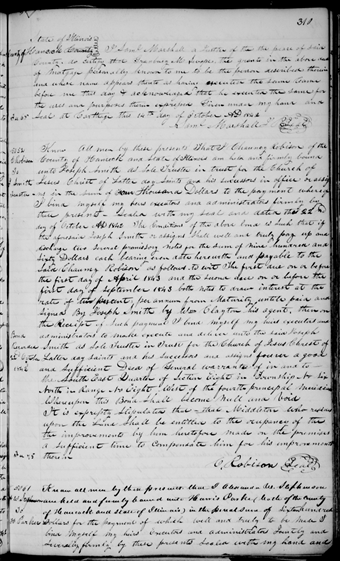 310
State of Illinois
Hancock County I Saml Marshall a Justice of the peace of said
County, do certify that
of Mortgage personally known to me to be the person described therein
and whose name appears thereto as having executed the same came
before me this day & acknowledged that he executed the same for
the uses and purposes therein expressed. Given under my hand and
Seal at Carthage this 14th day of October AD 1842
Saml Marshall Seal
Know All men by these presents That I Chauncy Robison of the
County of Hancock and State of Illinois am held and firmly bound
unto Joseph Smith as Sole Trustee in trust for the Church of
Jesus Christ of Latter day Saints and his successors in office & assigns
in the sum of Thousand Dollars to the payment whereof
I bind myself my heirs executors and administrators firmly by
these presents Sealed with my seal and dated this 22
day of October AD 1842 The Condition of the above bond is such that if
the aforesaid Joseph Smith or assigns shall well and truly pay up and
two several promissory notes for the sum of nine hundred and
Sixty Dollars each bearing even date herewith and payable to the
Said Chauncy Robison as follows to wit The first due on or before
the first day of April 1843 and the Second due on or before the
first day of September 1843 both notes to draw interest at the
rate of per annum from Maturity until paid and
Signed By Joseph Smith by Wm Clayton his agent, then on
the Receipt of such payment I bind myself my heirs executors and
administrators to make execute and deliver unto the said Joseph
Smith as Sole Trustee in Trust for the Church of Jesus Christ of
Latter day Saints and his successors and assigns forever a good
and Sufficient Deed of General warrantee in and to
the South East Quarter of Section Eight in Township No Six
North in Range No Eight West of the fourth principal Meridian
Whereupon this Bond shall become null and void
It is expressly Stipulated that Middleton who resides
upon the Land Shall be entitled to the occupancy of the
the improvements by him heretofore made on the premises
a Sufficient time to Compensate him for his improvements
therein
C. Robison Seal
Know all men by these presents that I
are held and firmly bound unto Harris Parker both of the County
of Hancock and State of Illinois in the penal sum of
Dollars for the payment of which well and truly to be made I
bind myself my heirs executors and administrators jointly and
severally firmly by these presents Sealed with my hand and